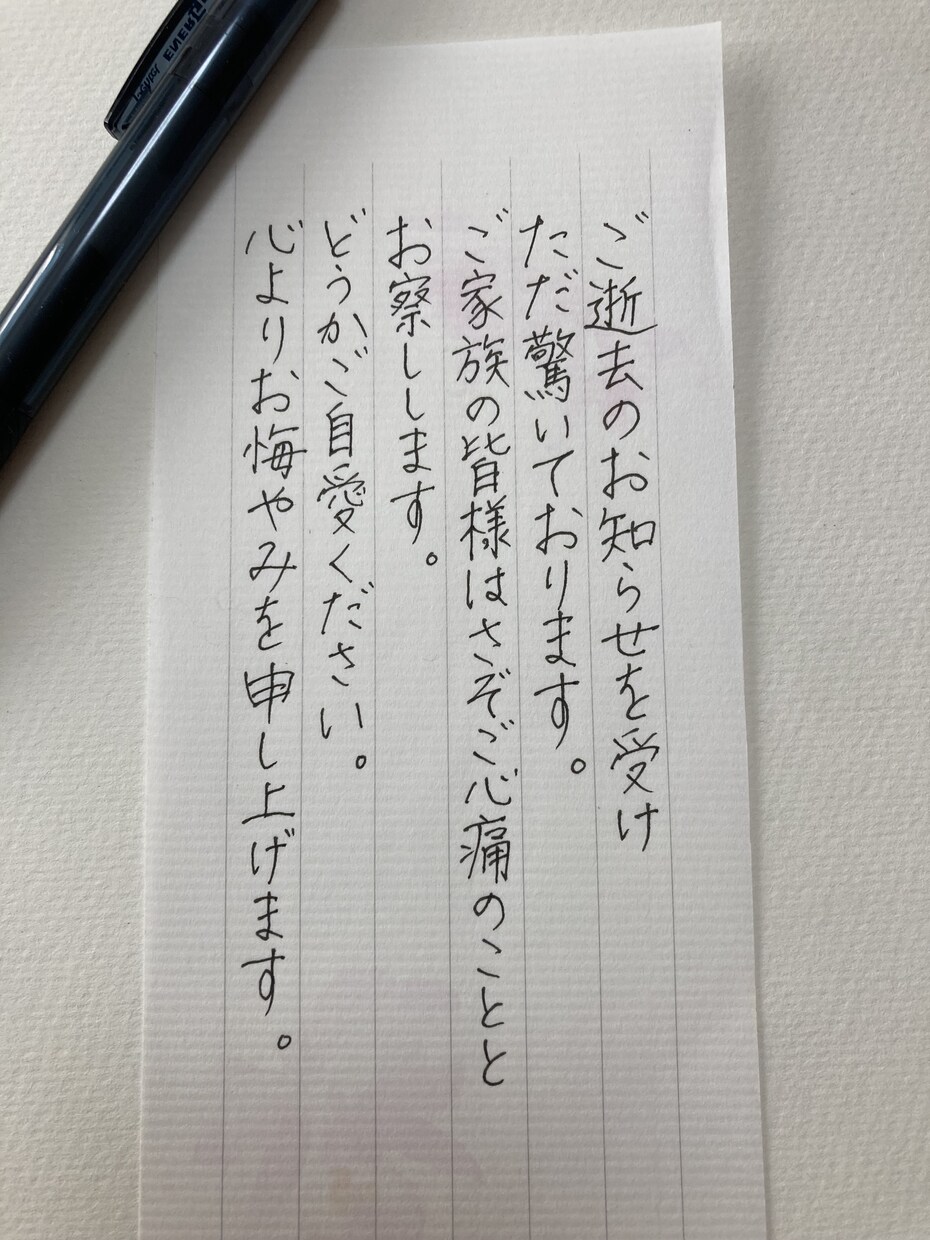 ご逝去のお知らせを受け
ただ驚いております。
ご家族の皆様はさぞご心痛のことと
お察しします。
どうかご自愛ください。
心よりお悔やみを申し上げます。
Pentel ENERGEL